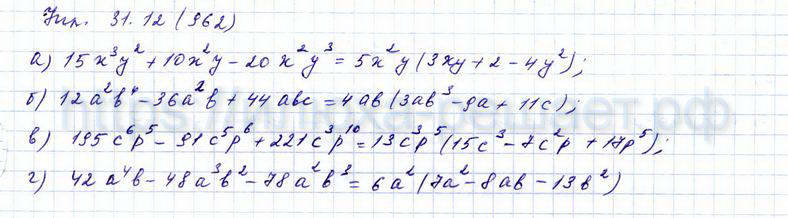 Упр. 31.12 (962)
а) 15x³y² + 10x²y – 20x²y³ = 5x²y (3xy + 2 – 4y²);
б) 12a²b⁴ – 36a²b + 44abc = 4ab (3ab³ – 9a + 11c);
в) 195c⁶p⁵ – 91c⁵p⁶ + 221c³p¹⁰ = 13c³p⁵ (15c³ – 7c²p + 17p⁵);
г) 42a⁴b – 48a³b² – 78a²b³ = 6a² (7a² – 8ab – 13b²)